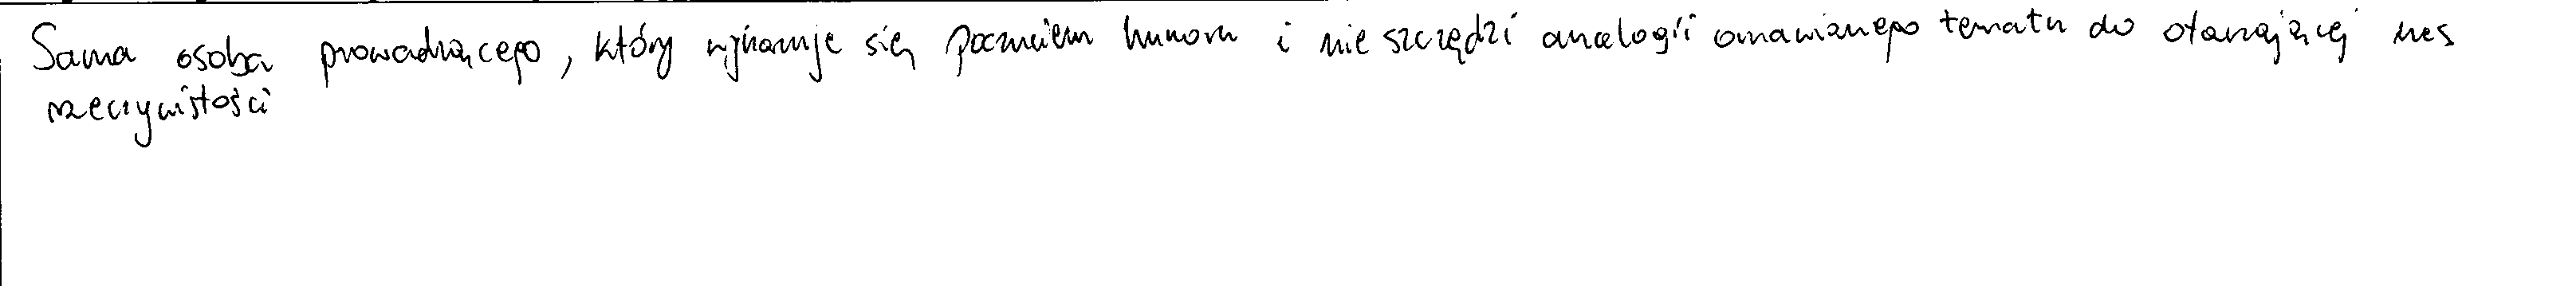 Sama osoba prowadzącego, który wykazuje się poczuciem humoru i nie szczędzi analogii omawianego tematu do otaczającej nas
rzeczywistości